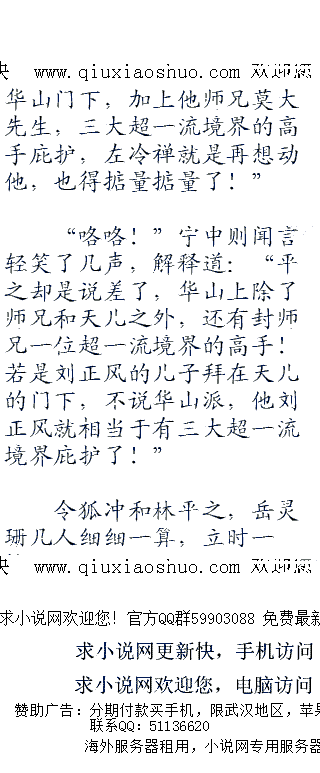 www.qiuxiaoshuo.com 欢迎您
华山门下，加上他师兄莫大
先生，三大超一流境界的高
手庇护，左冷禅就是再想动
他，也得掂量掂量了！”
“咯咯！”宁中则闻言
轻笑了几声，解释道：“平
之却是说差了，华山上除了
师兄和天儿之外，还有封师
兄一位超一流境界的高手！
若是刘正风的儿子拜在天儿
的门下，不说华山派，他刘
正风就相当于有三大超一流
境界庇护了！”
令狐冲和林平之，岳灵
珊几人细细一算，立时一
www.qiuxiaoshuo.com 欢迎您
求小说网欢迎您! 官方QQ群59903088 免费最新
求小说网更新快，手机访问
求小说网欢迎您，电脑访问
赞助广告：分期付款买手机，限武汉地区，苹果
联系QQ：51136620
海外服务器租用，小说网专用服务器